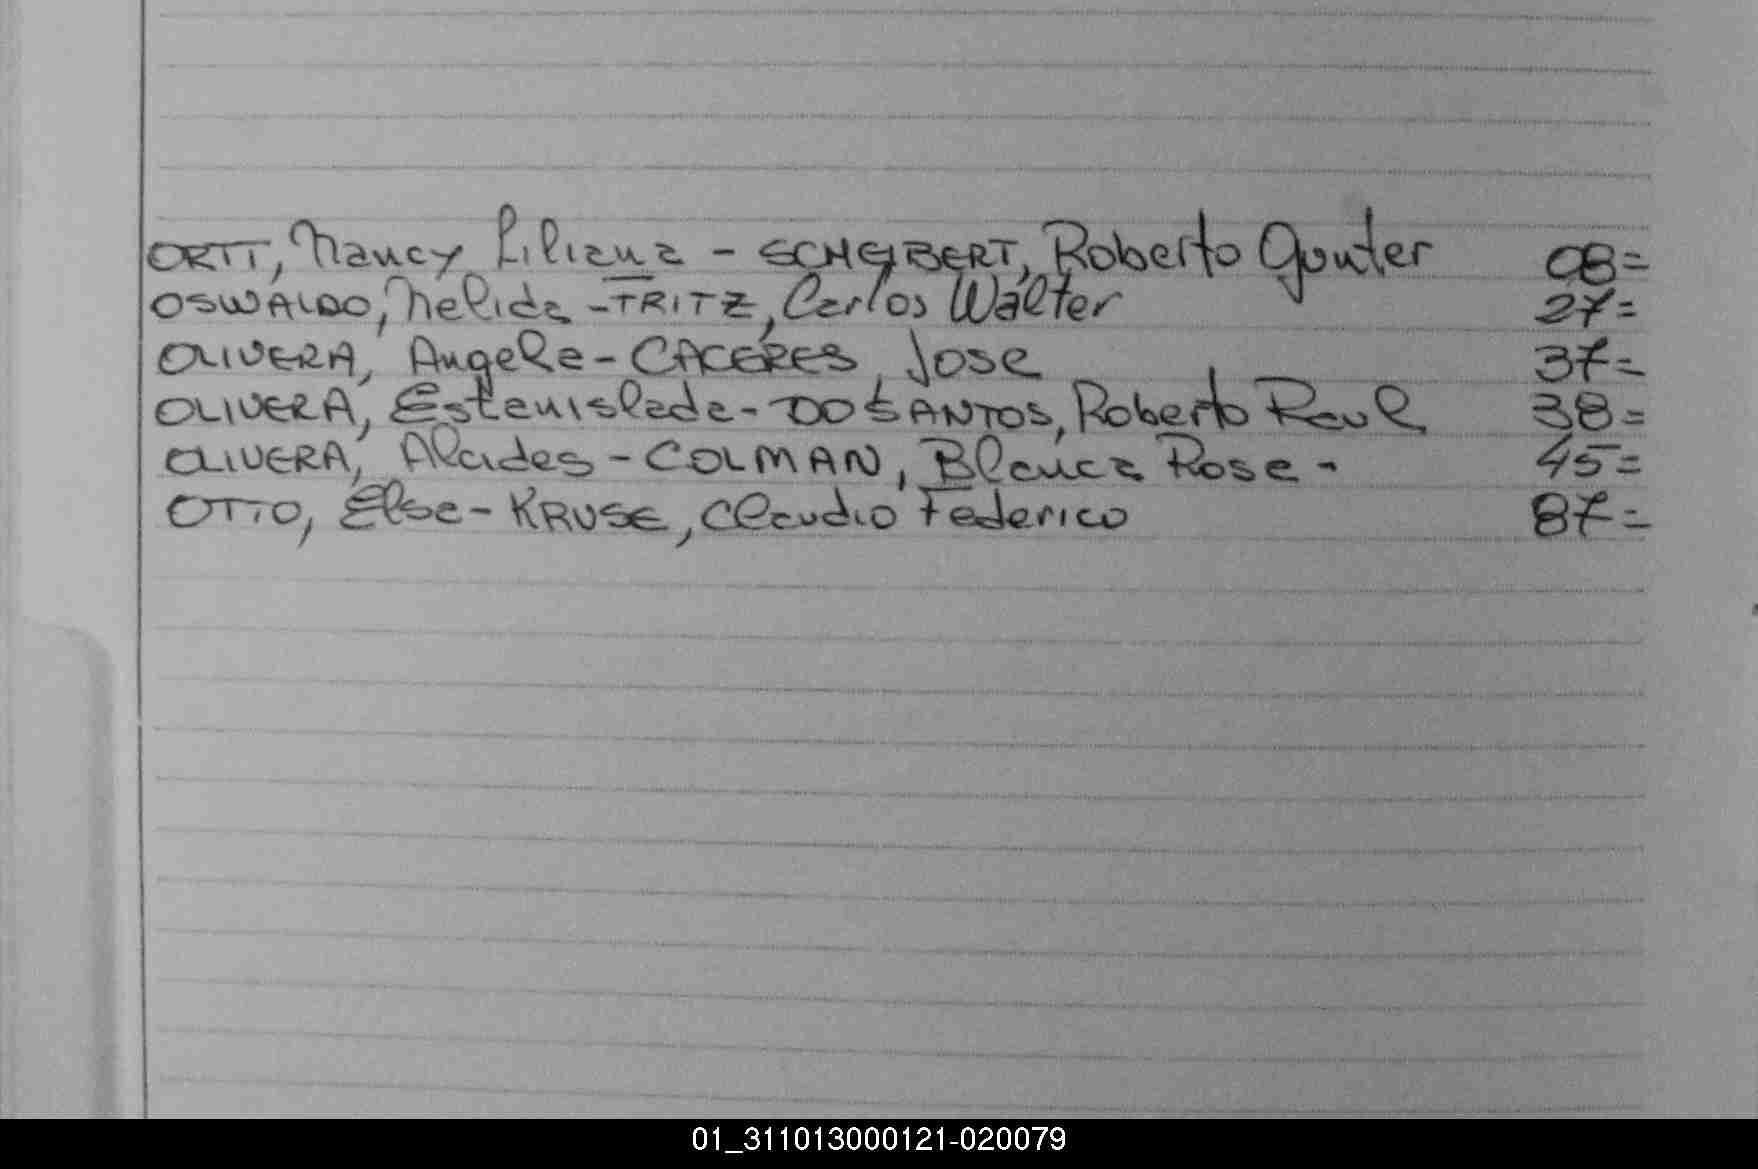 ORTT, Nancy Liliana - SCHEIBERT, Roberto Gunter 08=
OSWALDO, Nelida - TRITZ, Carlos Walter 27=
OLIVERA, Angela - CACERES, Jose 37=
OLIVERA, Estanislada - DO SANTOS, Roberto Raul 38=
OLIVERA, Alcides - COLMAN, Blanca Rosa - 45=
OTTO, Elsa - KRUSE, Claudio Federico 87=
01_311013000121-020079